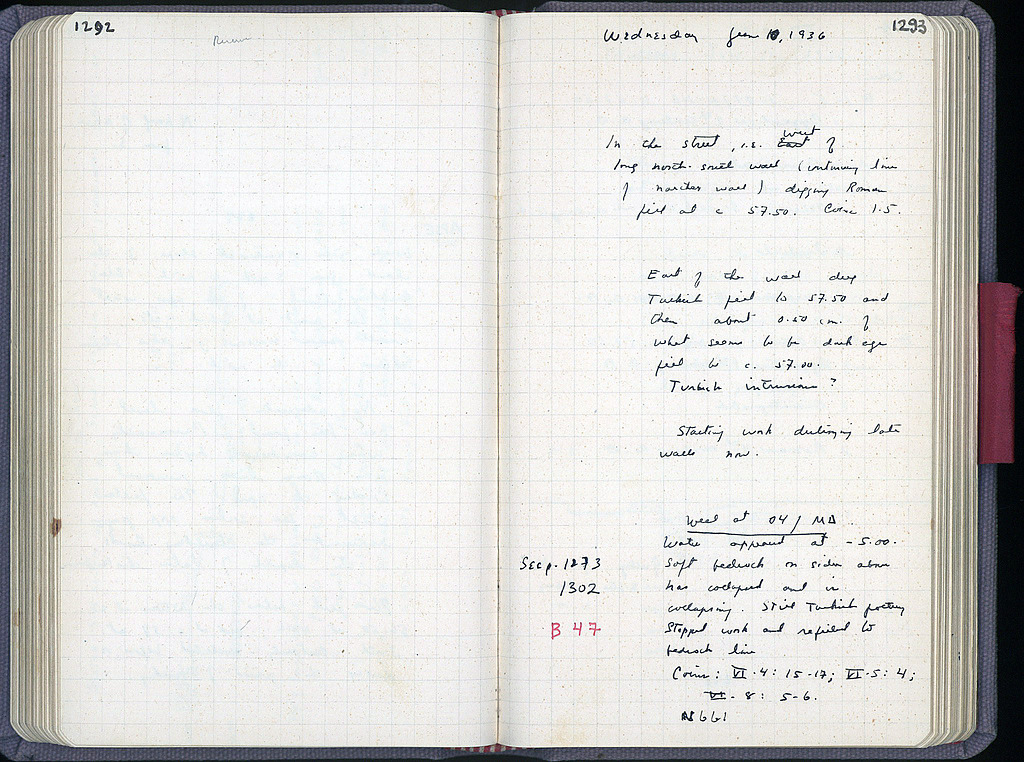 1292
1293
Wednesday June 10, 1936
west
In the street, i.e. East of
long north-south wall (continuing line
of narthex wall) digging Roman
fill at c 57.50. Coins 1-5.
East of the wall deep
Turkish fill to 57.50 and
then about 0.50 cm. of
what seems to be dark age
fill to c. 57.00.
Turkish intrusion?
Starting work destroying late
walls now.
Well at 04/ΜΔ
Water appeared at -5.00.
See p. 1273
Soft bedrock on sides above
1302
has collapsed and is
collapsing. Still Turkish pottery
B 47
Stopped work and refilled to
bedrock line
Coins: VI-4: 15-17; VI-5: 4;
VI-8: 5-6.
N661